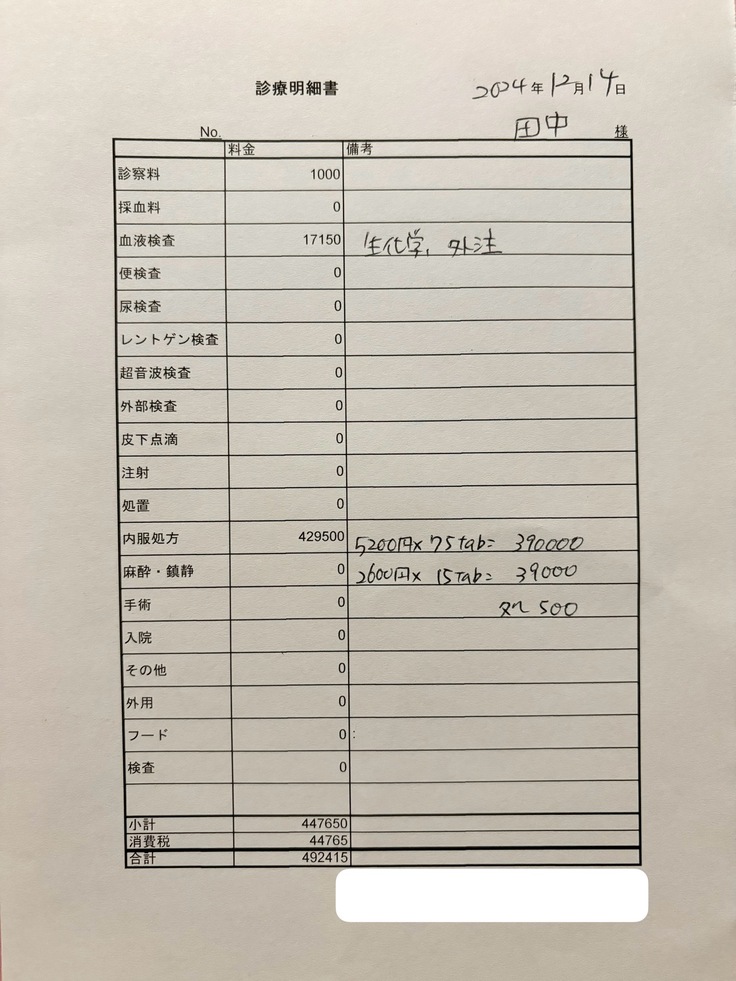 診療明細書
2024年12月14日
No. 田中 様
料金 備考
診察料 1000
採血料 0
血液検査 17150 生化学、外注
便検査 0
尿検査 0
レントゲン検査 0
超音波検査 0
外部検査 0
皮下点滴 0
注射 0
処置 0
内服処方 429500 5200円× 75tab= 390000
麻酔・鎮静 0 2600円× 15Tab= 39000
手術 0 500
入院 0
その他 0
外用 0
フード 0 :
検査 0
小計 447650
消費税 44765
合計 492415